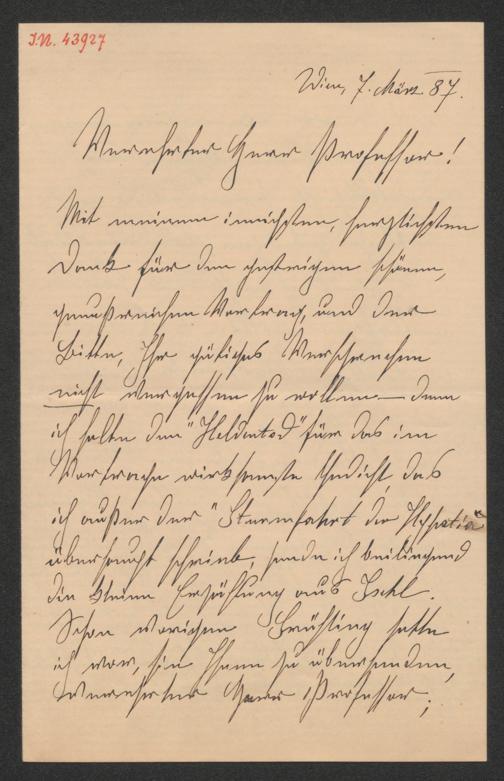 I.N. 43927
Wien, 7. März 87.
Verehrter Herr Professor!
Mit meinem innigsten, herzlichsten
Dank für den gestrigen schönen,
genußreichen Vortrag, und der
Bitte, Ihr gütiges Versprechen
nicht vergessen zu wollen — denn
ich halte den "Heldentod" für das im
Vortrage wirksamste Gedicht, das
ich außer der "Sturmfahrt der Hypatia"
überhaupt schrieb, sende ich beiliegend
die kleine Erzählung aus Ischl.
Schon vorigen Frühling hatte
ich vor, sie Ihnen zu übersenden,
Verehrter Herr Professor;